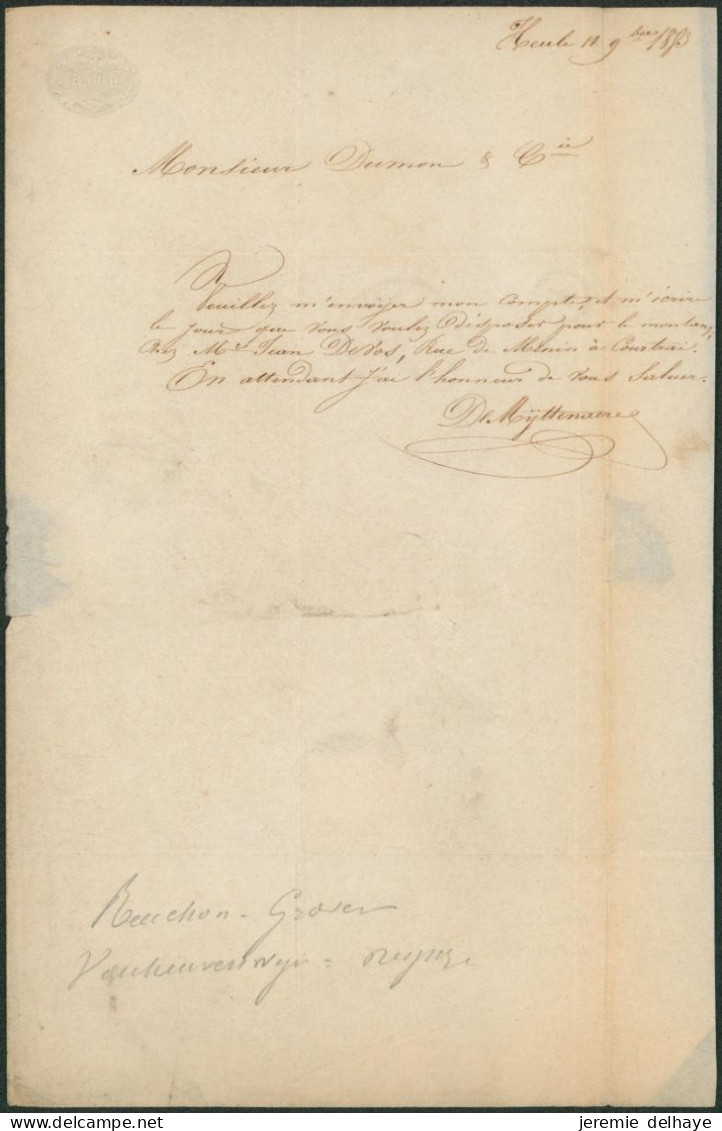 Heule 11 9bre 1853
Monsieur Dumon & Cie
Veuillez m'envoyer mon compte, et m'écrire
le jour que vous voulez disposer pour le montan,
chez Mr Jean DeVos, Rue de Menin à Courtrai.
En attendant J'ai l'honneur de vous saluer.
DeMÿttenaere
jeremie delhaye